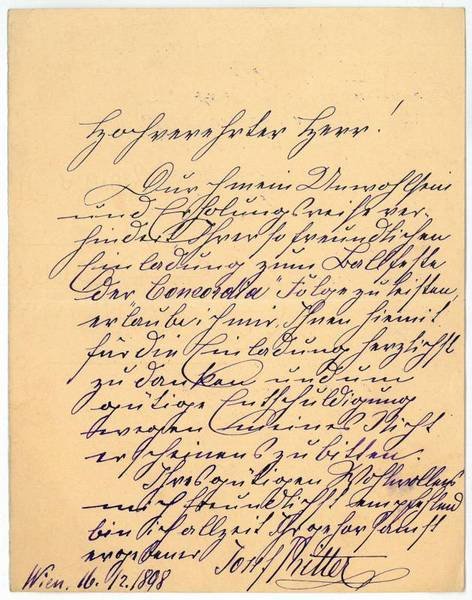 Hochverehrter Herr!
Durch mein Unwohlsein
und Erholungsreise ver-
hindert Ihrer so freundlichen
Einladung zum Ballfeste
der „Concordia“ Folge zu leisten,
erlaube ich mir, Ihnen hiemit
für die Einladung herzlichst
zu danken und um
gütige Entschuldigung
wegen meines Nicht
erscheinens zu bitten.
Ihres gütigen Wohlwollens
mich freundlichst empfehlend
bin ich allzeit Ihr gehorsamst
ergebener Josef Ritter
Wien, 16. 12. 1898